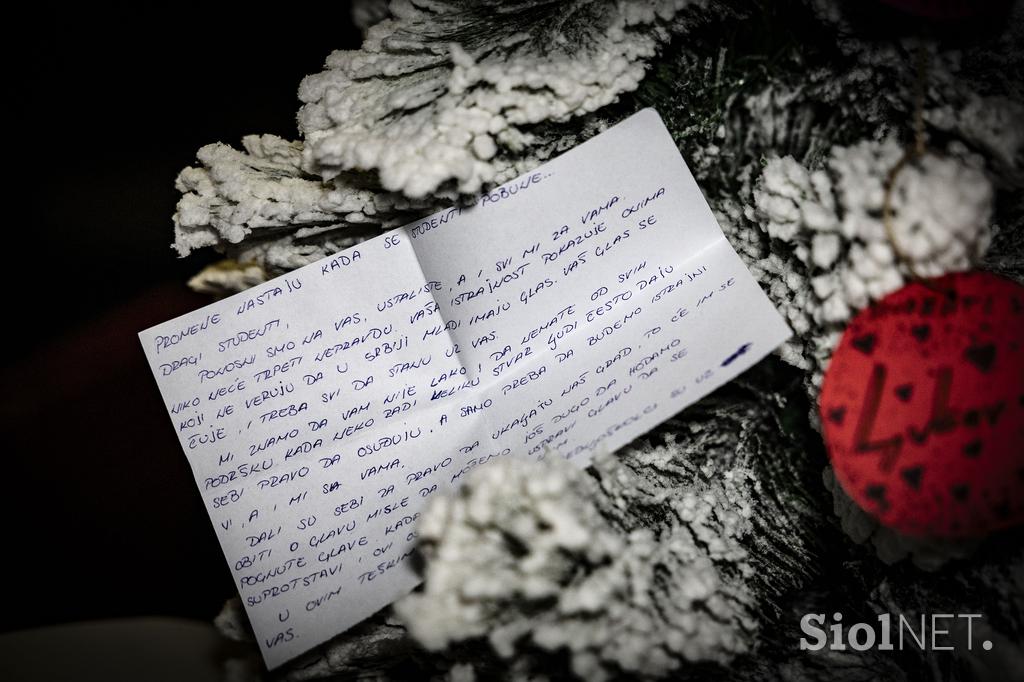 PROMENE NASTAJU KADA SE STUDENTI POBUNE...
DRAGI STUDENTI,
PONOSNI SMO NA VAS, USTALISTE, A I SVI MI ZA VAMA.
NIKO NEĆE TRPETI NEPRAVDU. VAŠA ISTRAJNOST POKAZUJE ONIMA
KOJI NE VERUJU DA U SRBIJI MLADI IMAJU GLAS. VAŠ GLAS SE
ČUJE, I TREBA SVI DA STANU UZ VAS.
MI ZNAMO DA VAM NIJE LAKO I DA NEMATE OD SVIH
PODRŠKU. KADA NEKO RADI VELIKU STVAR LJUDI ČESTO DAJU
SEBI PRAVO DA OSUĐUJU, A SAMO TREBA DA BUDEMO ISTRAJNI
VI, A I MI SA VAMA.
DALI SU SEBI ZA PRAVO DA UKALJAJU NAŠ GRAD, TO ĆE IM SE
OBITI O GLAVU. MISLE DA MOŽEMO JOŠ DUGO DA HODAMO
POGNUTE GLAVE. KADA USPRAVI GLAVU DA SE
SUPROTSTAVI, OVI
U OVIM TEŠKIM SU UZ
VAS.
Ljubav
SiolNET.